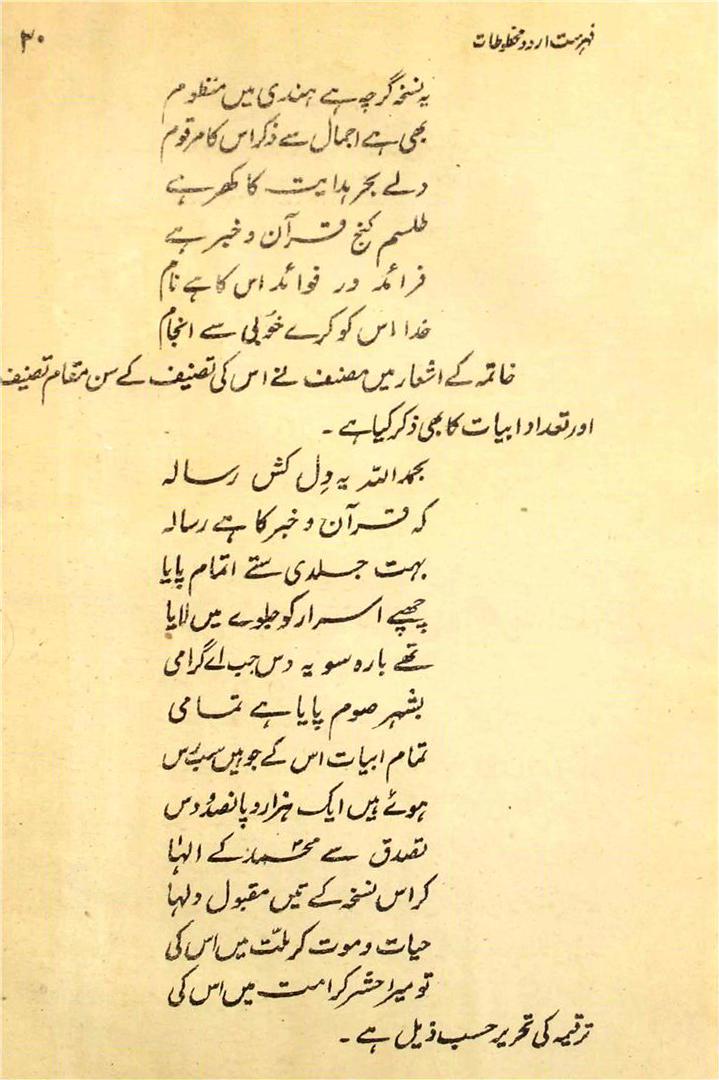 فہرست اردو مخطوطات
۳۰
یہ نسخہ گرچہ ہے ہندی میں منظوم
بھی ہے اجمال سے ذکر اس کا مرقوم
ولے بحر ہدایت کا گھر ہے
طلسم گنج قرآن و خبر ہے
فرائد در فوائد اس کا ہے نام
خدا اس کو کرے خوبی سے انجام
خاتمہ کے اشعار میں مصنف نے اس کی تصنیف کے سن مقام تصنیف
اور تعداد ابیات کا بھی ذکر کیا ہے ۔
بحمداللہ یہ دِل کش رسالہ
کہ قرآن و خبر کا ہے رسالہ
بہت جلدی ستے اتمام پایا
چھپے اسرار کو جلوے میں لایا
تھے بارہ سو یہ دس جب اے گرامی
بشہر صوم پایا ہے تمامی
تمام ابیات اس کے جو ہیں سب رس
ہوئے ہیں ایک ہزار و پانصد و دس
تصدق سے محمدؐ کے الہٰا
کر اس نسخہ کے تیں مقبول دلہا
حیات و موت کر ملّت میں اس کی
تو میرا حشر کر امت میں اس کی
ترقیمہ کی تحریر حسب ذیل ہے ۔